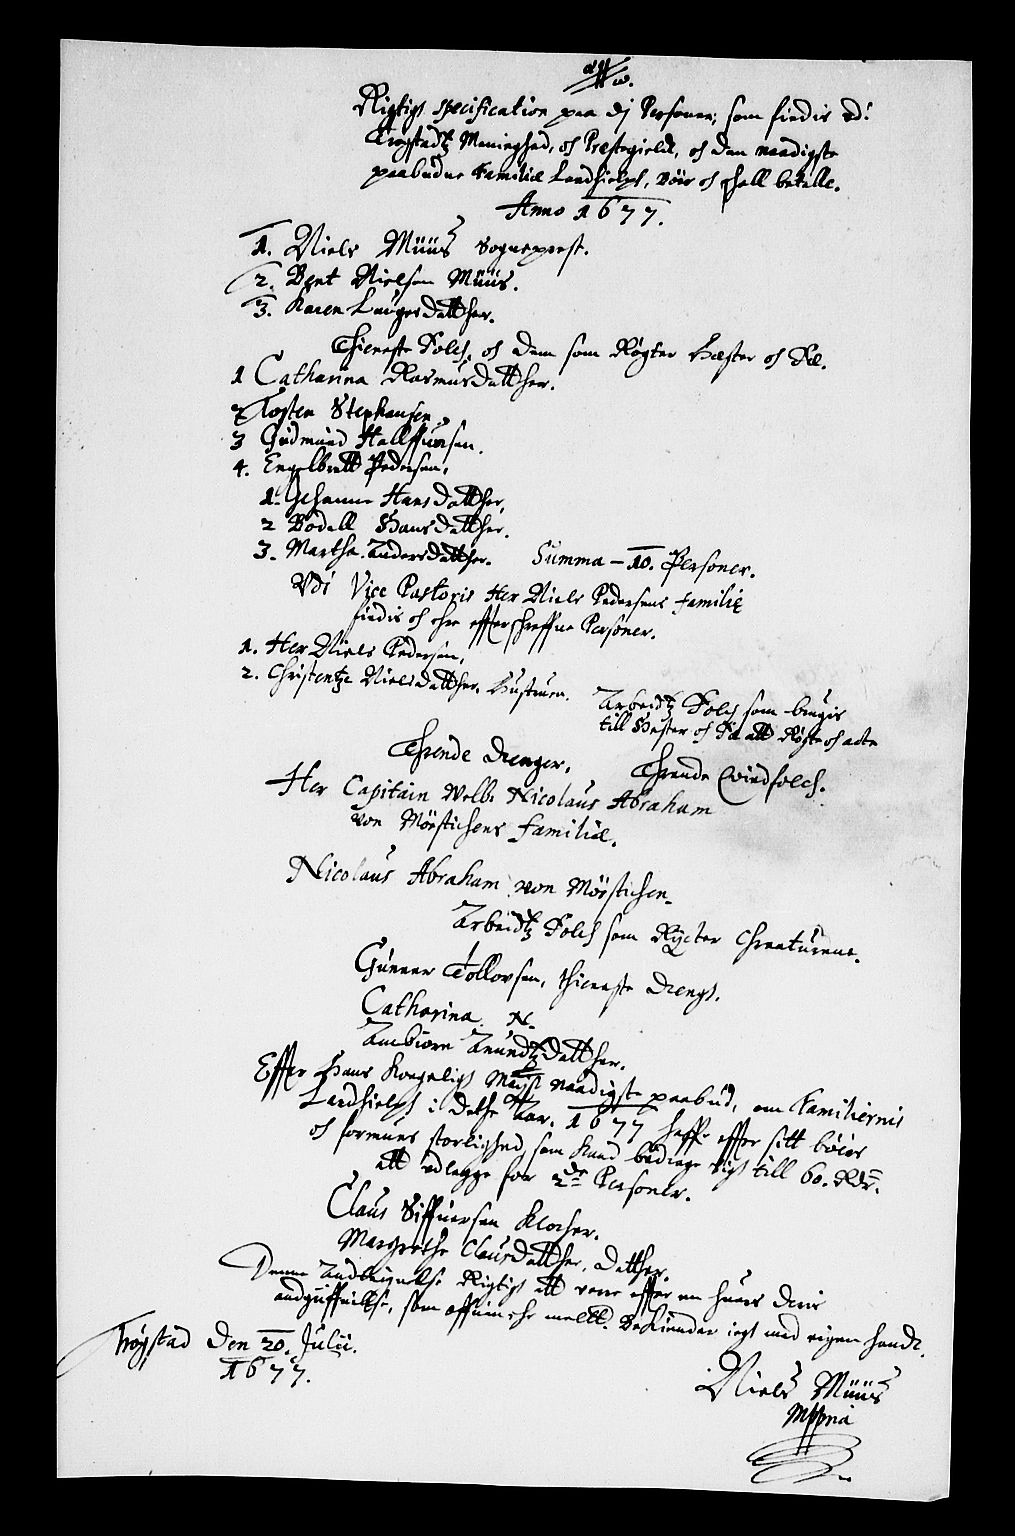 Rigtigh specification paa dj Personer, som findis udi
Trøgstadtz Menighed, och Prestegield, och den naadigste
paabudne Familiæ Landhielp, bør och schall betalle.
Anno 1677.
1. Niels Müüs Sogneprest.
2. Bent Nielsen Müüs.
3. Karen Laugesdatther.
Thieneste Folch, och dem som Røgter Hæster och Fæ.
1 Catharina Rasmusdatther.
2 Tosten Stephansen
3 Gudmund Hallffuorsen.
4. Engelbrett Pedersen,
1. Johanne Hansdatther,
2 Bodell Hansdatther.
3. Marthe Andersdatther. Summa - 10. Personer.
Udi Vice Pastoris Her Niels Pedersens familiæ
findis och efftterschreffne Personer.
1. Her Niels Pedersen,
2. Christentze Nielsdatther. Hustruen.
Arbeidtz Folch som brugis
till Hester och Fæ att Røgte och acte
Thrende Drenger, Thrende Qvindfolch.
Her Capitain Welb. Nicolaus Abraham
von Mörstichens familiæ.
Nicolaus Abraham von Mörstichen
Arbeidtz Folch som Rycter Chreaturene.
Gunner Tollovsen, thieneste Drengh.
Catharina N.
Anbiorn Amundtzdatther.
Effter Hans Kongeligh Mayst naadigste paabud, om Familiernis
Landhielph i dette Aar. 1677 haffr effter sitt böiés
och formues storlighed, som kand bedrage sigh till 60. Rdr.
att udlegge for 2de Personer.
Claus Siffuersen Klocher.
Margrethe Clausdatther, datther.
Denne Andtegnelse Rigtigh att vere effter en huers deris
andguffuelse, som offuen er meltt. Bekiender iegh med eigen handt.
Trøgstad Den 20. Julii.
1677.
Niels Müüs
Mppria